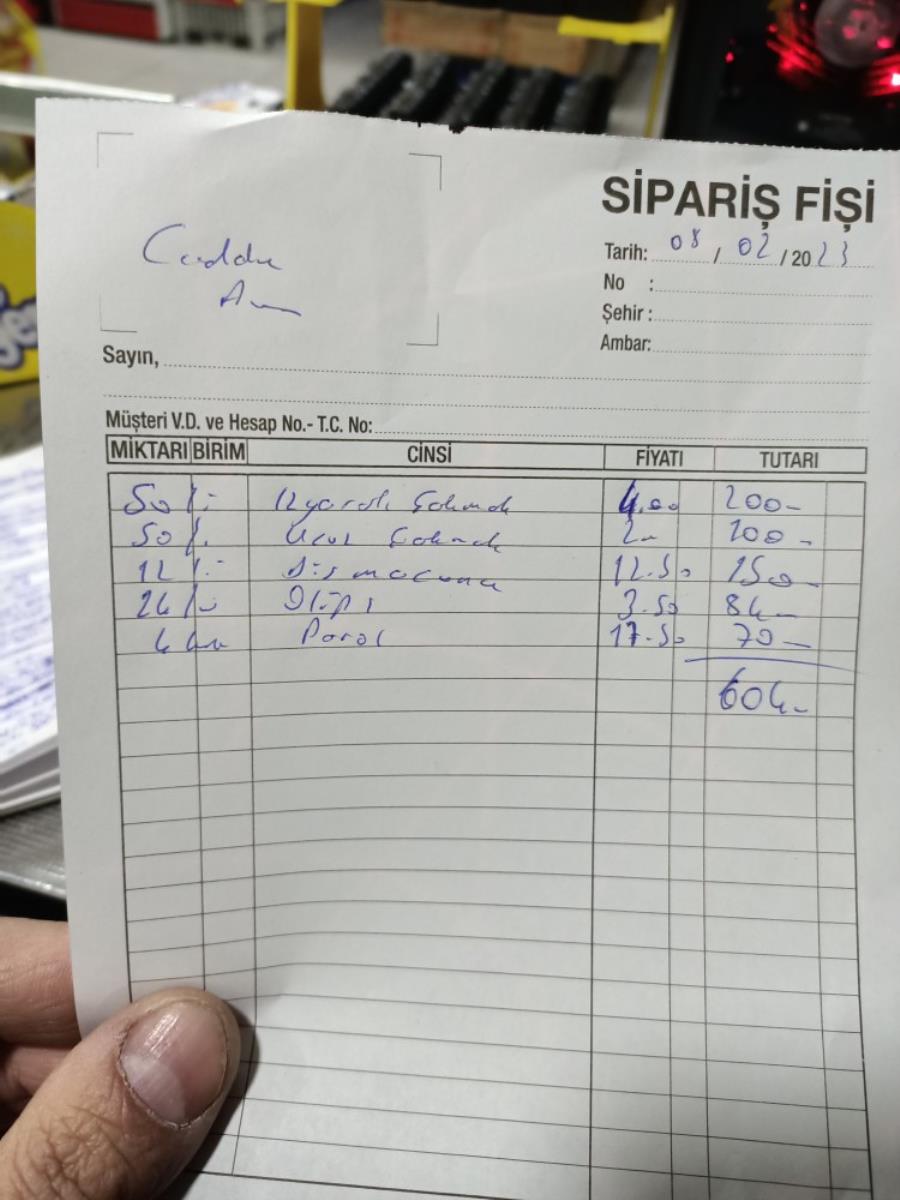 SİPARİŞ FİŞİ
Tarih: 08 / 02 / 2023
No :
Şehir :
Ambar:
Sayın,
Müşteri V.D. ve Hesap No.- T.C. No:
MİKTARI BİRİM CİNSİ FİYATI TUTARI
50 Çakmak 4.00 200-
50 Ucuz Çakmak 2- 100-
12 Diş macunu 12.50 150-
24 3.50 84-
4 Parol 17.50 70-
604-